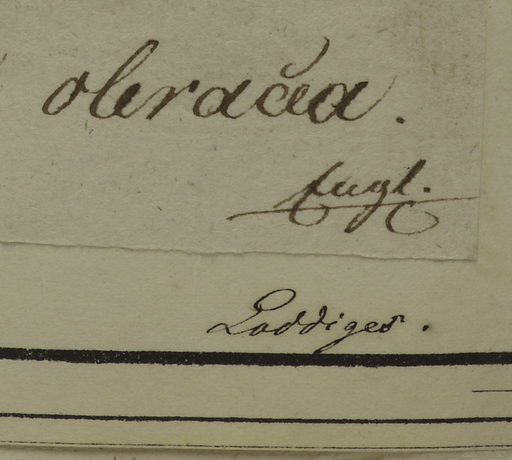 oleracea.
Engl.
Loddiges.